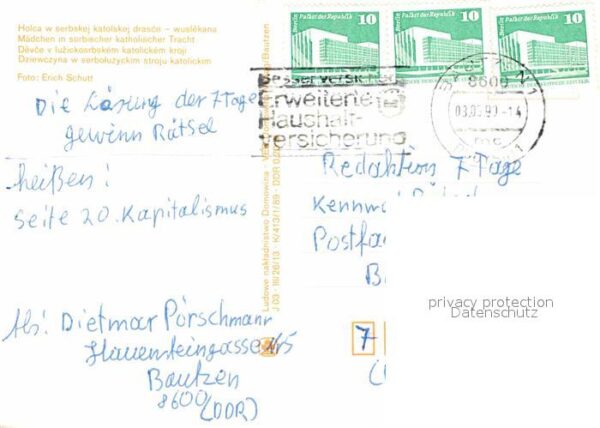 Holca w serbskej katolskej drasće – wuslěkana
Mädchen in sorbischer katholischer Tracht
Děvče v lužickosrbském katolickém kroji
Dziewczyna w serbołużyckim stroju katolickim
Foto: Erich Schutt
Berlin, Palast der Republik
10
DDR
Berlin, Palast der Republik
10
DDR
Berlin, Palast der Republik
10
Besser versichert
Erweiterte
Haushalt-
versicherung
BAUTZEN 1
8600
-14
Die Lösung der 7 Tage
gewinn Rätsel
heißen!
Seite 20. Kapitalismus
Abs: Dietmar Pörschmann
Hauensteingasse
Bautzen
8600 (DDR)
Ludowe nakładnistwo Domowina · Bautzen
J 03 · III/26/13 · K/413/1/89 · DDR
Redaktion 7 Tage
Kennw
Postfa
B
7
(
privacy protection
Datenschutz